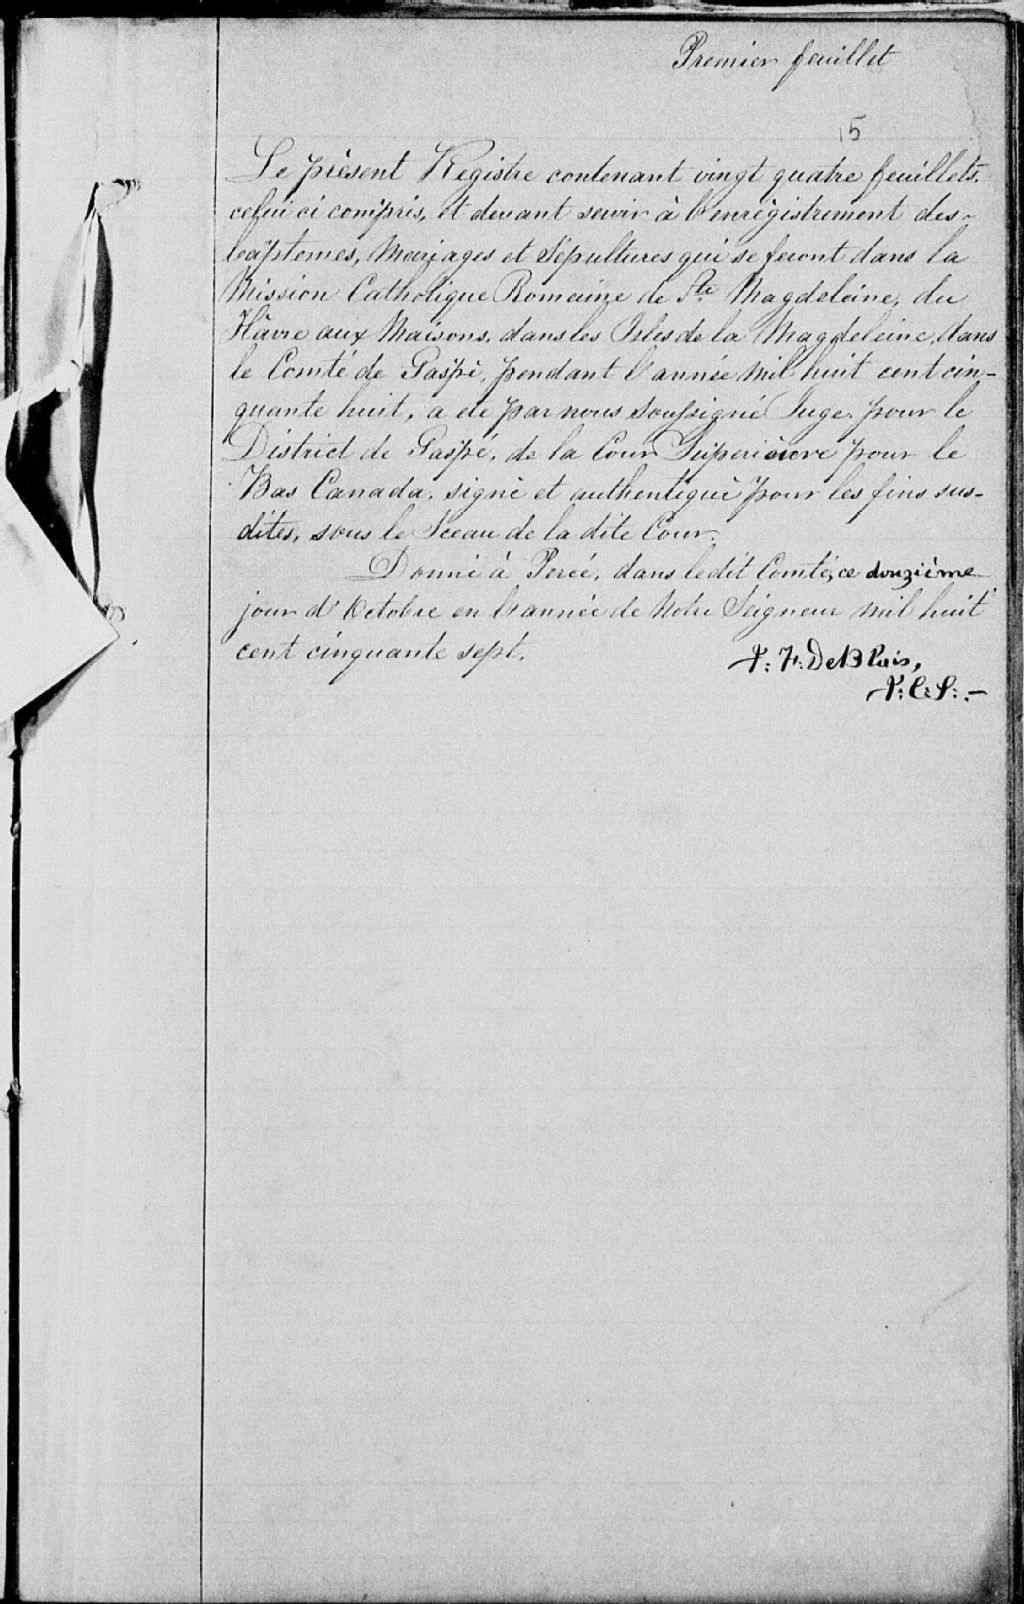 Premier feuillet
15
Le présent Registre contenant vingt quatre feuillets,
celui ci compris, et devant servir à l'enrégistrement des
baptemes, Mariages et Sépultures qui se feront dans la
Mission Catholique Romaine de Ste Magdeleine, du
Hâvre aux Maisons, dans les Isles de la Magdeleine, dans
le Comté de Gaspé, pendant l'année mil huit cent cin-
quante huit, a été par nous Soussigné Juge, pour le
District de Gaspé, de la Cour Supérieure pour le
Bas Canada, signé et authentiqué pour les fins sus-
dites, sous le Sceau de la dite Cour.
Donné à Percé, dans le dit Comté, ce douzième
jour d'Octobre en l'année de Notre Seigneur mil huit
cent cinquante sept.
J: F: DeBlois,
J: C: S: -